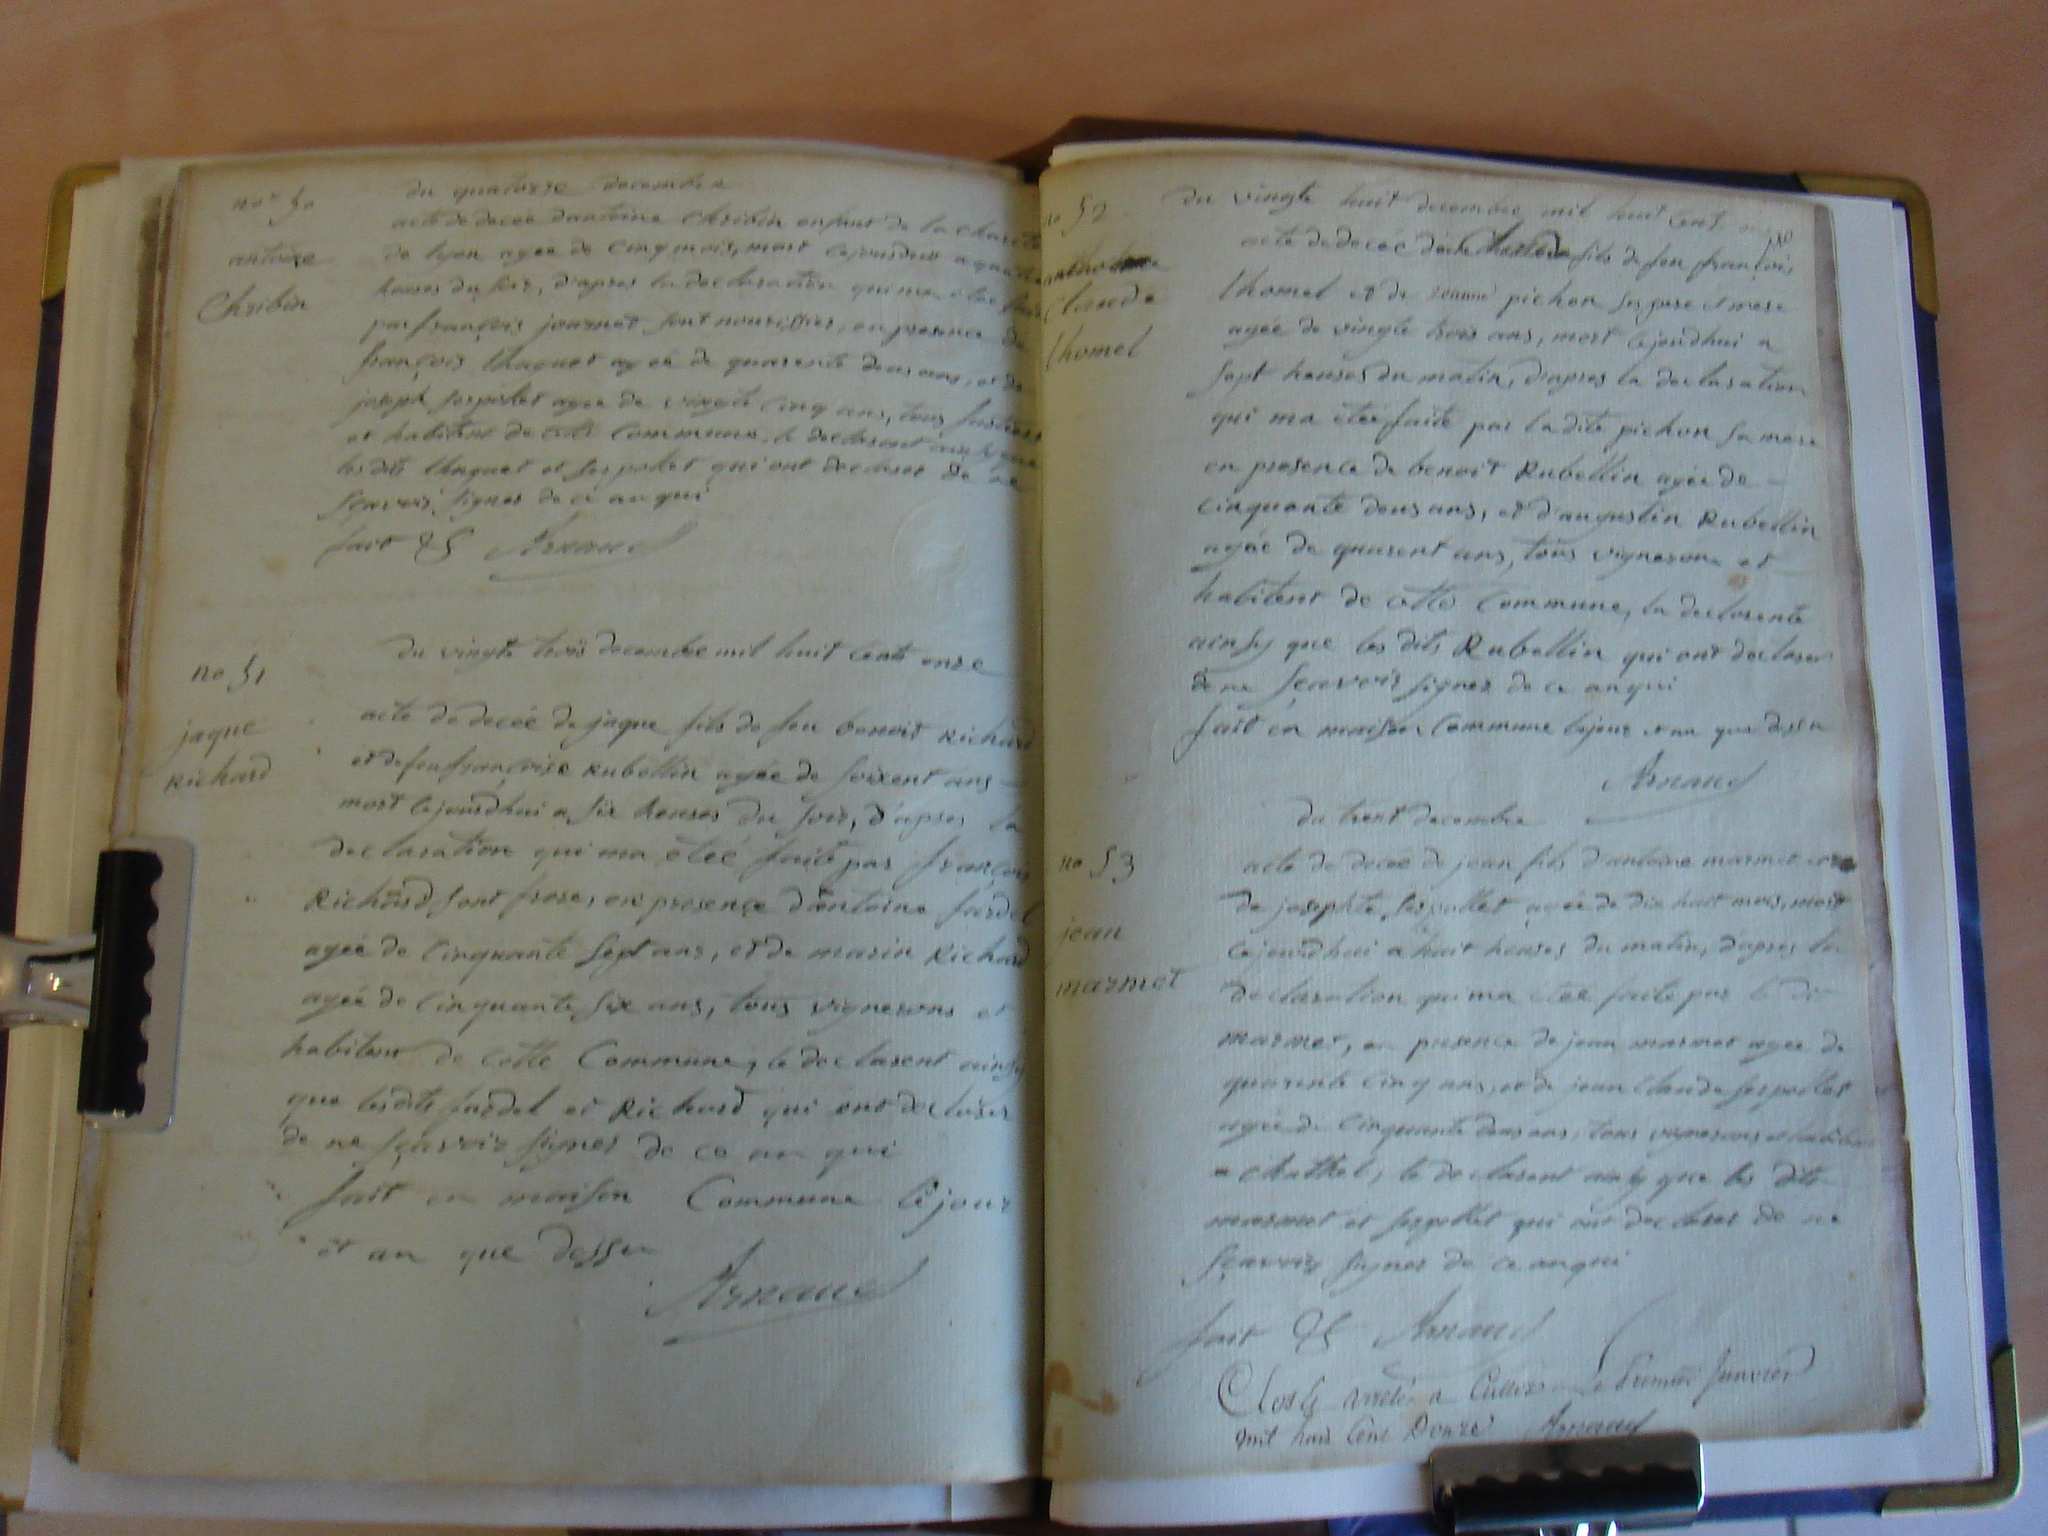 no 50
antoine
Chribin
du quatorze decembre
acte de decée d'antoine Chribin enfant de la charité
de lyon agée de cinq mois, mort
heures du soir, d'apres la declaration qui ma etee faite
par françois journet sont nourissier, en presence de
françois thaquet agée de quarente deus ans, et de
joseph serpolet agée de vingte cinq ans, tous
et habitent de cette commune, le declarent ainsy que
les dits thaquet et serpolet qui ont declarer de ne
sçavoir signer de ce an qui
fait &c Arnaud
no 51
jaque
Richard
du vingte trois decembre mil huit cents onze
acte de decée de jaque fils de feu benoit Richard
et de feu françoise Rubellin agée de soixent ans
mort cejourdhui a six heures du soir, d'apres la
declaration qui ma étéé faite par françois
Richard sont frere, en presence d'antoine fardel
agée de cinquante sept ans, et de marin Richard
agée de cinquante six ans, tous vignerons et
habitent de cette Commune, le declarent ainsy
que les dits fardel et Richard qui ont declarer
de ne sçavoir signer de ce an qui
fait en maison Commune le jour
et an que dessu
Arnaud
no 52
Claude
thomel
du vingte huit decembre mil huit cent
acte de decée de fils de feu françois
thomel et de pichon ses pere et mere
agée de vingte trois ans, mort cejourdhui a
sept heures du matin, d'apres la declaration
qui ma étéé faite par la dite pichon sa mere
en presence de benoit Rubellin agée de
cinquante deus ans, et d'augustin Rubellin
agée de quarent ans, tous vignerons et
habitent de cette Commune, la declarente
ainsy que les dits Rubellin qui ont declarer
de ne sçavoir signer de ce an qui
fait en maison Commune le jour et an que dessu
Arnaud
no 53
jean
marmet
du trent decembre
acte de decée de jean fils d'antoine marmet et
de josephte serpollet agée de dix huit mois, mort
cejourdhui a huit heures du matin, d'apres la
declaration qui ma étéé faite par le dit
marmet, en presence de jean marmet agée de
quarente cinq ans, et de jean Claude serpollet
agée de cinquante deus ans, tous vignerons et habitent
a Chathel, le declarent ainsy que les dits
marmet et serpollet qui ont declarer de ne
sçavoir signer de ce an qui
fait &c Arnaud
Clos & arrêté a le Premier Janvier
mil huit Cent Douze Arnaud